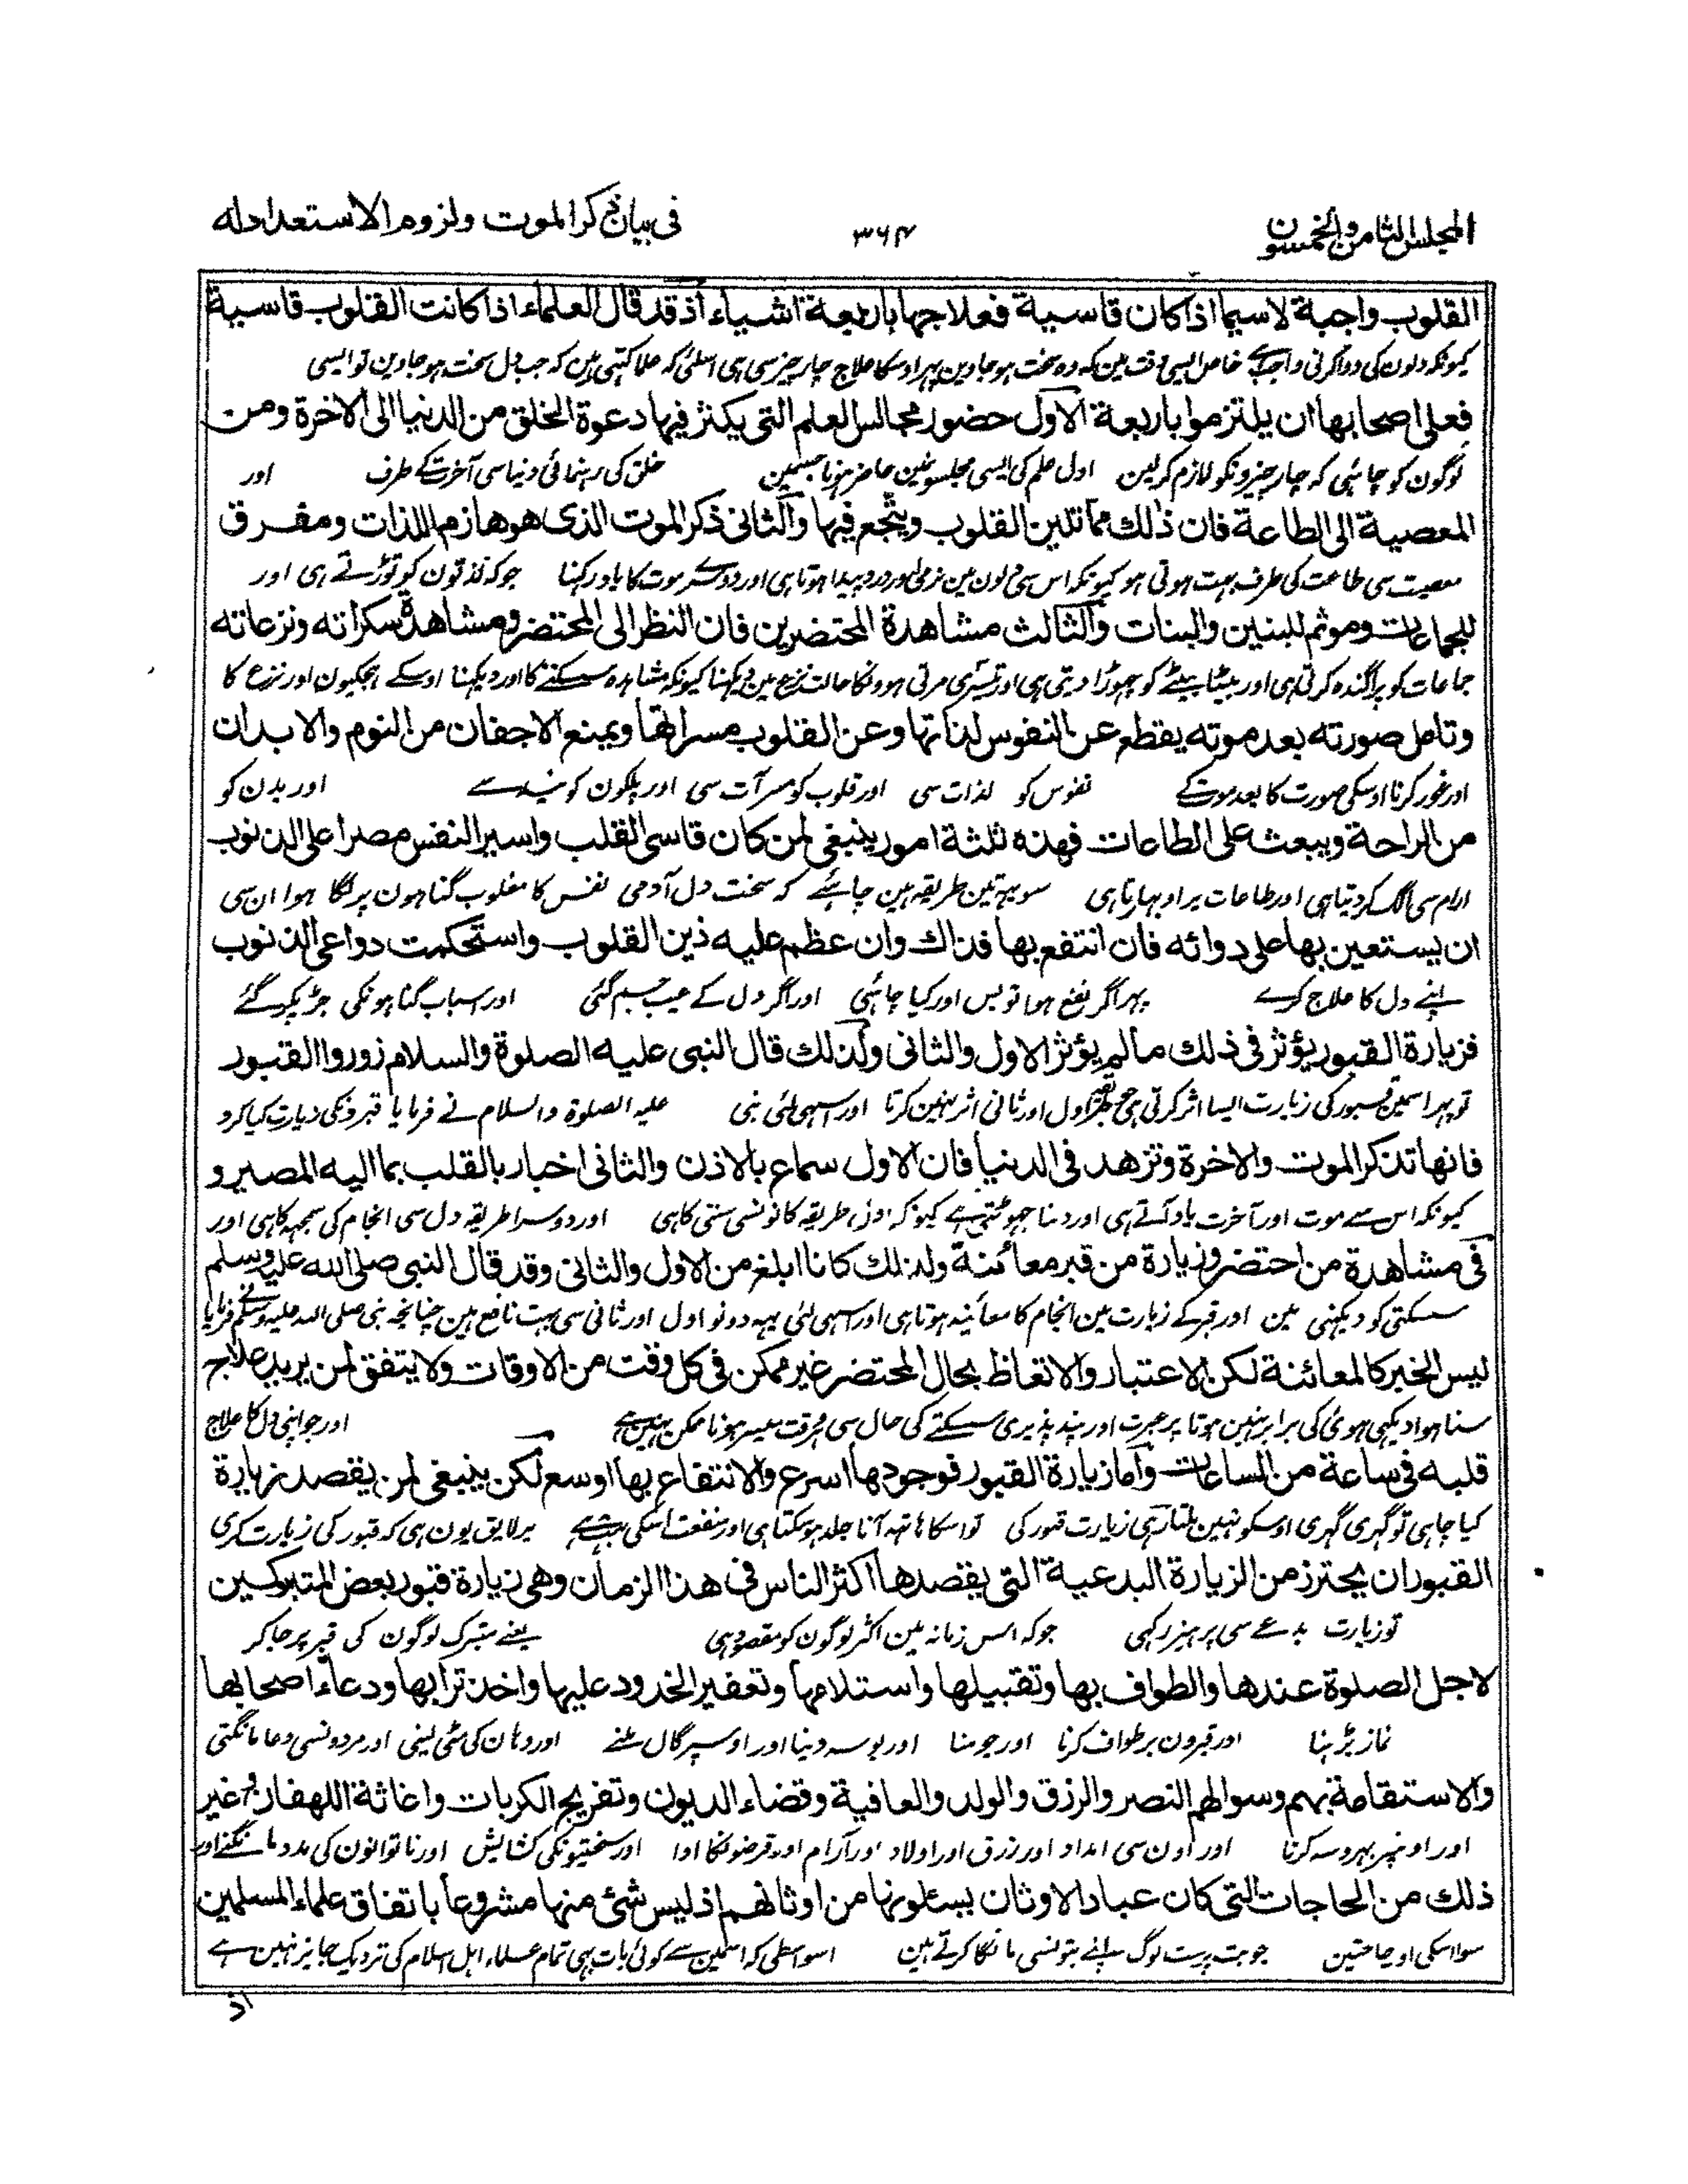 المجلس الثامن والخمسون
٣٦٤
فى بيان ذكر الموت ولزوم الاستعداد له
القلوب واجبة لاسيما اذا كان قاسية فعلاجها باربعة اشياء اذ قد قال العلماء اذا كانت القلوب قاسية
کیونکہ دلون کی دوا کرنی واجب ہے خاص ایسی وقت مین کہ وہ سخت ہو جاوین پہر اوسکا علاج چار چیز سی ہی اسلئی کہ علما کہتی ہین کہ جب دل سخت ہو جاوین تو ایسی
فعلى اصحابها ان يلتزموا باربعة الاول حضور مجالس العلم التى يكثر فيها دعوة الخلق من الدنيا الى الاخرة ومن
لوگون کو چاہئی کہ چار چیزونکو لازم کرلین اول علم کی ایسی مجلسونمین حاضر ہونا جسمین خلق کی رہنمائی دنیا سی آخرت کے طرف اور
المعصية الى الطاعة فان ذلك مما تلين القلوب وينجع فيها والثانى ذكر الموت الذى هو هازم اللذات ومفرق
معصیت سی طاعت کی طرف بہت ہوتی ہو کیونکہ اس سی دلون مین نرمی اور درد پیدا ہوتا ہی اور دوسکر موت کا یاد رکہنا جو کہ لذتون کو توڑتے ہی اور
للجماعات وموتم للبنين والبنات والثالث مشاهدة المحتضرين فان النظر الى المحتضر ومشاهدة سكراته ونزعاته
جماعات کو پراگندہ کرتی ہی اور بیٹا بیٹے کو چہوڑا دیتی ہی اور تیسری مرتی ہوونکا حالت نزع مین دیکہنا کیونکہ مشاہدہ سسکنے کا اور دیکہنا اوسکے ہچکیون اور نزع کا
وتامل صورته بعد موته يقطع عن النفوس لذاتها وعن القلوب مسراتها ويمنع الاجفان من النوم والابدان
اور غور کرنا اوسکی صورت کا بعد موت کے نفوس کو لذات سی اور قلوب کو مسرآت سی اور پلکون کو نیند سے اور بدن کو
من الراحة ويبعث على الطاعات فهذه ثلثة امور ينبغى لمن كان قاسى القلب واسير النفس مصرا على الذنوب
ارام سی الگ کر دیتا ہی اور طاعات پر اوبہارتا ہی سو یہہ تین طریقہ ہین چاہئے کہ سخت دل آدمی نفس کا مغلوب گناہون پر لگا ہوا ان سی
ان يستعين بها على دوائه فان انتفع بها فذاك وان عظم عليه ذين القلوب واستحكمت دواعى الذنوب
اپنے دل کا علاج کرے پہر اگر نفع ہوا تو بس اور کیا چاہئی اور اگر دل کے عیب جم گئی اور اسباب گناہونکی جڑ پکڑ گئے
فزيارة القبور يؤثر فى ذلك ما لم يؤثر الاول والثانى ولذلك قال النبى عليه الصلوة والسلام زوروا القبور
تو پہر اسمین قبور کی زیارت ایسا اثر کرتی ہی اول اور ثانی اثر نہین کرتا اور اسہی لئی نبی علیہ الصلوۃ والسلام نے فرمایا قبرونکی زیارت کیا کرو
فانها تذكر الموت والاخرة وتزهد فى الدنيا فان الاول سماع بالاذن والثانى اخبار بالقلب بما اليه المصير و
کیونکہ اس سے موت اور آخرت یاد آتے ہی اور دنیا چہوٹتی ہے کیونکہ اول طریقہ کانونسی سنتی کا ہی اور دوسرا طریقہ دل سی انجام کی سمجہہ کا ہی اور
فى مشاهدة من احتضر وزيارة من قبر معائنة ولذلك كانا ابلغ من الاول والثانى وقد قال النبى صلى الله عليه وسلم
سسکتی کو دیکہنی مین اور قبر کے زیارت مین انجام کا معائنہ ہوتا ہی اور اسہی لئی یہہ دونو اول اور ثانی سی بہت نافع ہین چنانچہ نبی صلی اللہ علیہ وسلم نے فرمایا
ليس الخبر كالمعائنة لكن الاعتبار والاتعاظ بحال المحتضر غير ممكن فى كل وقت من الاوقات ولا يتفق لمن يريد علاج
سنا ہوا دیکہی ہوئی کی برابر نہین ہوتا پر عبرت اور پند پذیری سسکتے کی حال سی ہر وقت میسر ہونا ممکن نہین ہے اور جو اپنی دل کا علاج
قلبه فى ساعة من الساعات واما زيارة القبور فوجودها اسرع والانتفاع بها اوسع لكن ينبغى لمن يقصد زيارة
کیا چاہی تو گہری گہری اوسکو نہین ملتا رہی زیارت قبور کی تو اسکا ہاتہہ آنا جلد ہو سکتا ہی اور منفعت اسکی پر لایق یون ہی کہ قبور کی زیارت کری
القبور ان يحترز من الزيارة البدعية التى يقصدها اكثر الناس فى هذا الزمان وهى زيارة قبور بعض المتبركين
تو زیارت بدعے سی پرہیز رکہی جو کہ اس زمانہ مین اکثر لوگون کو مقصود ہی یعنے متبرک لوگون کی قبر پر جا کر
لاجل الصلوة عندها والطواف بها وتقبيلها واستلامها وتعفير الخدود عليها واخذ ترابها ودعاء اصحابها
نماز پڑہنا اور قبرون پر طواف کرنا اور چومنا اور بوسہ دینا اور اوسپر گال ملنے اور وہان کی مٹی لینی اور مردونسی دعا مانگتی
والاستقامة بهم وسوالهم النصر والرزق والولد والعافية وقضاء الديون وتفريج الكربات واغاثة اللهفان وغير
اور اونپر بہروسہ کرنا اور اون سی امداد اور رزق اور اولاد اور آرام اور قرضونکا ادا اور سختیونکی کشایش اور ناتوانون کی مدد مانگنے اور
ذلك من الحاجات التى كان عباد الاوثان يسئلونها من اوثانهم اذ ليس شئ منها مشروعا باتفاق علماء المسلمين
سوا اسکی اور حاجتین جو بت پرست لوگ اپنے بتونسی مانگا کرتے ہین اسواسطی کہ اسمین سے کوئی بات ہی تمام علماء اہل اسلام کی نزدیک جایز نہین ہے
اذ